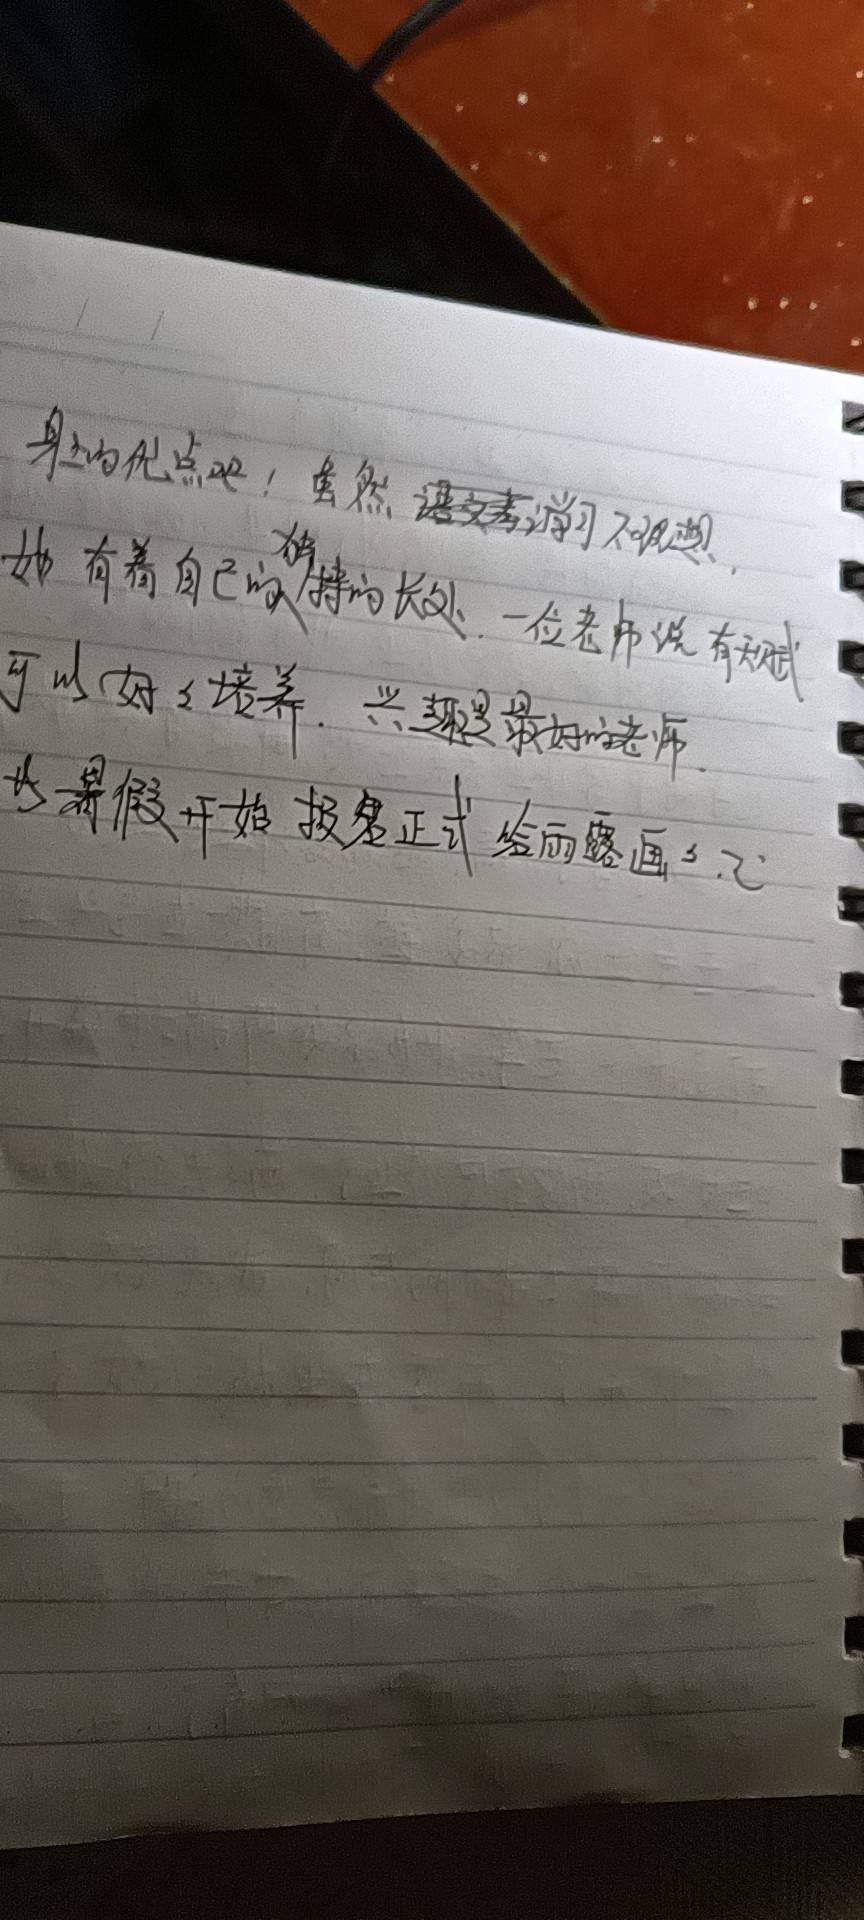 身上的优点吧！虽然学习不理想，
她有着自己的独特的长处．一位老师说有天赋
可以好好培养．兴趣是最好的老师．
暑假开始报名正式给雨露画画．